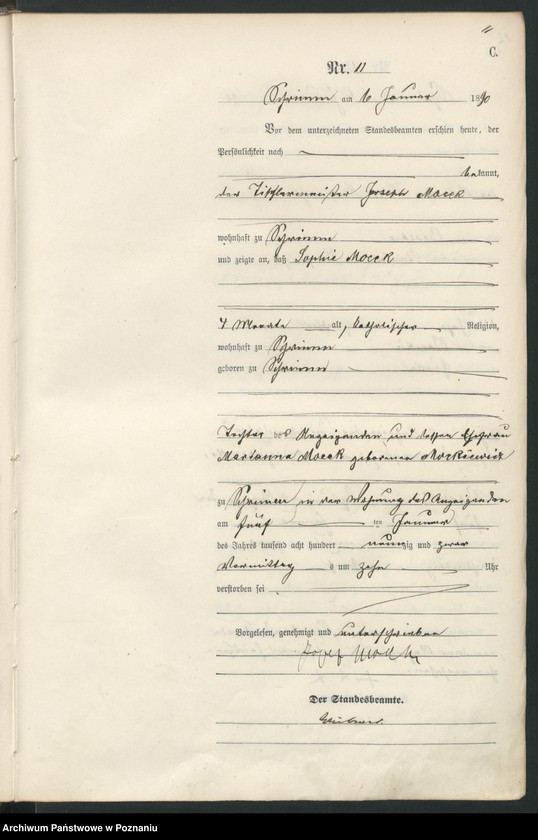 11
C.
Nr. 11
Schrimm am 6 Januar 1890
Vor dem unterzeichneten Standesbeamten erschien heute, der
Persönlichkeit nach
bekannt,
der Tischlermeister Joseph Mocek
wohnhaft zu Schrimm
und zeigte an, daß Sophie Mocek
4 Monate alt, katholischer Religion,
wohnhaft zu Schrimm
geboren zu Schrimm
Tochter des Anzeigenden und dessen Ehefrau
Marianna Mocek geborenen
zu Schrimm in der Wohnung des Anzeigenden
am fünf ten Januar
des Jahres tausend acht hundert neunzig und zwar
Vormittag s um zehn Uhr
verstorben sei
Vorgelesen, genehmigt und unterschrieben
Józef
Der Standesbeamte.
Archiwum Państwowe w Poznaniu